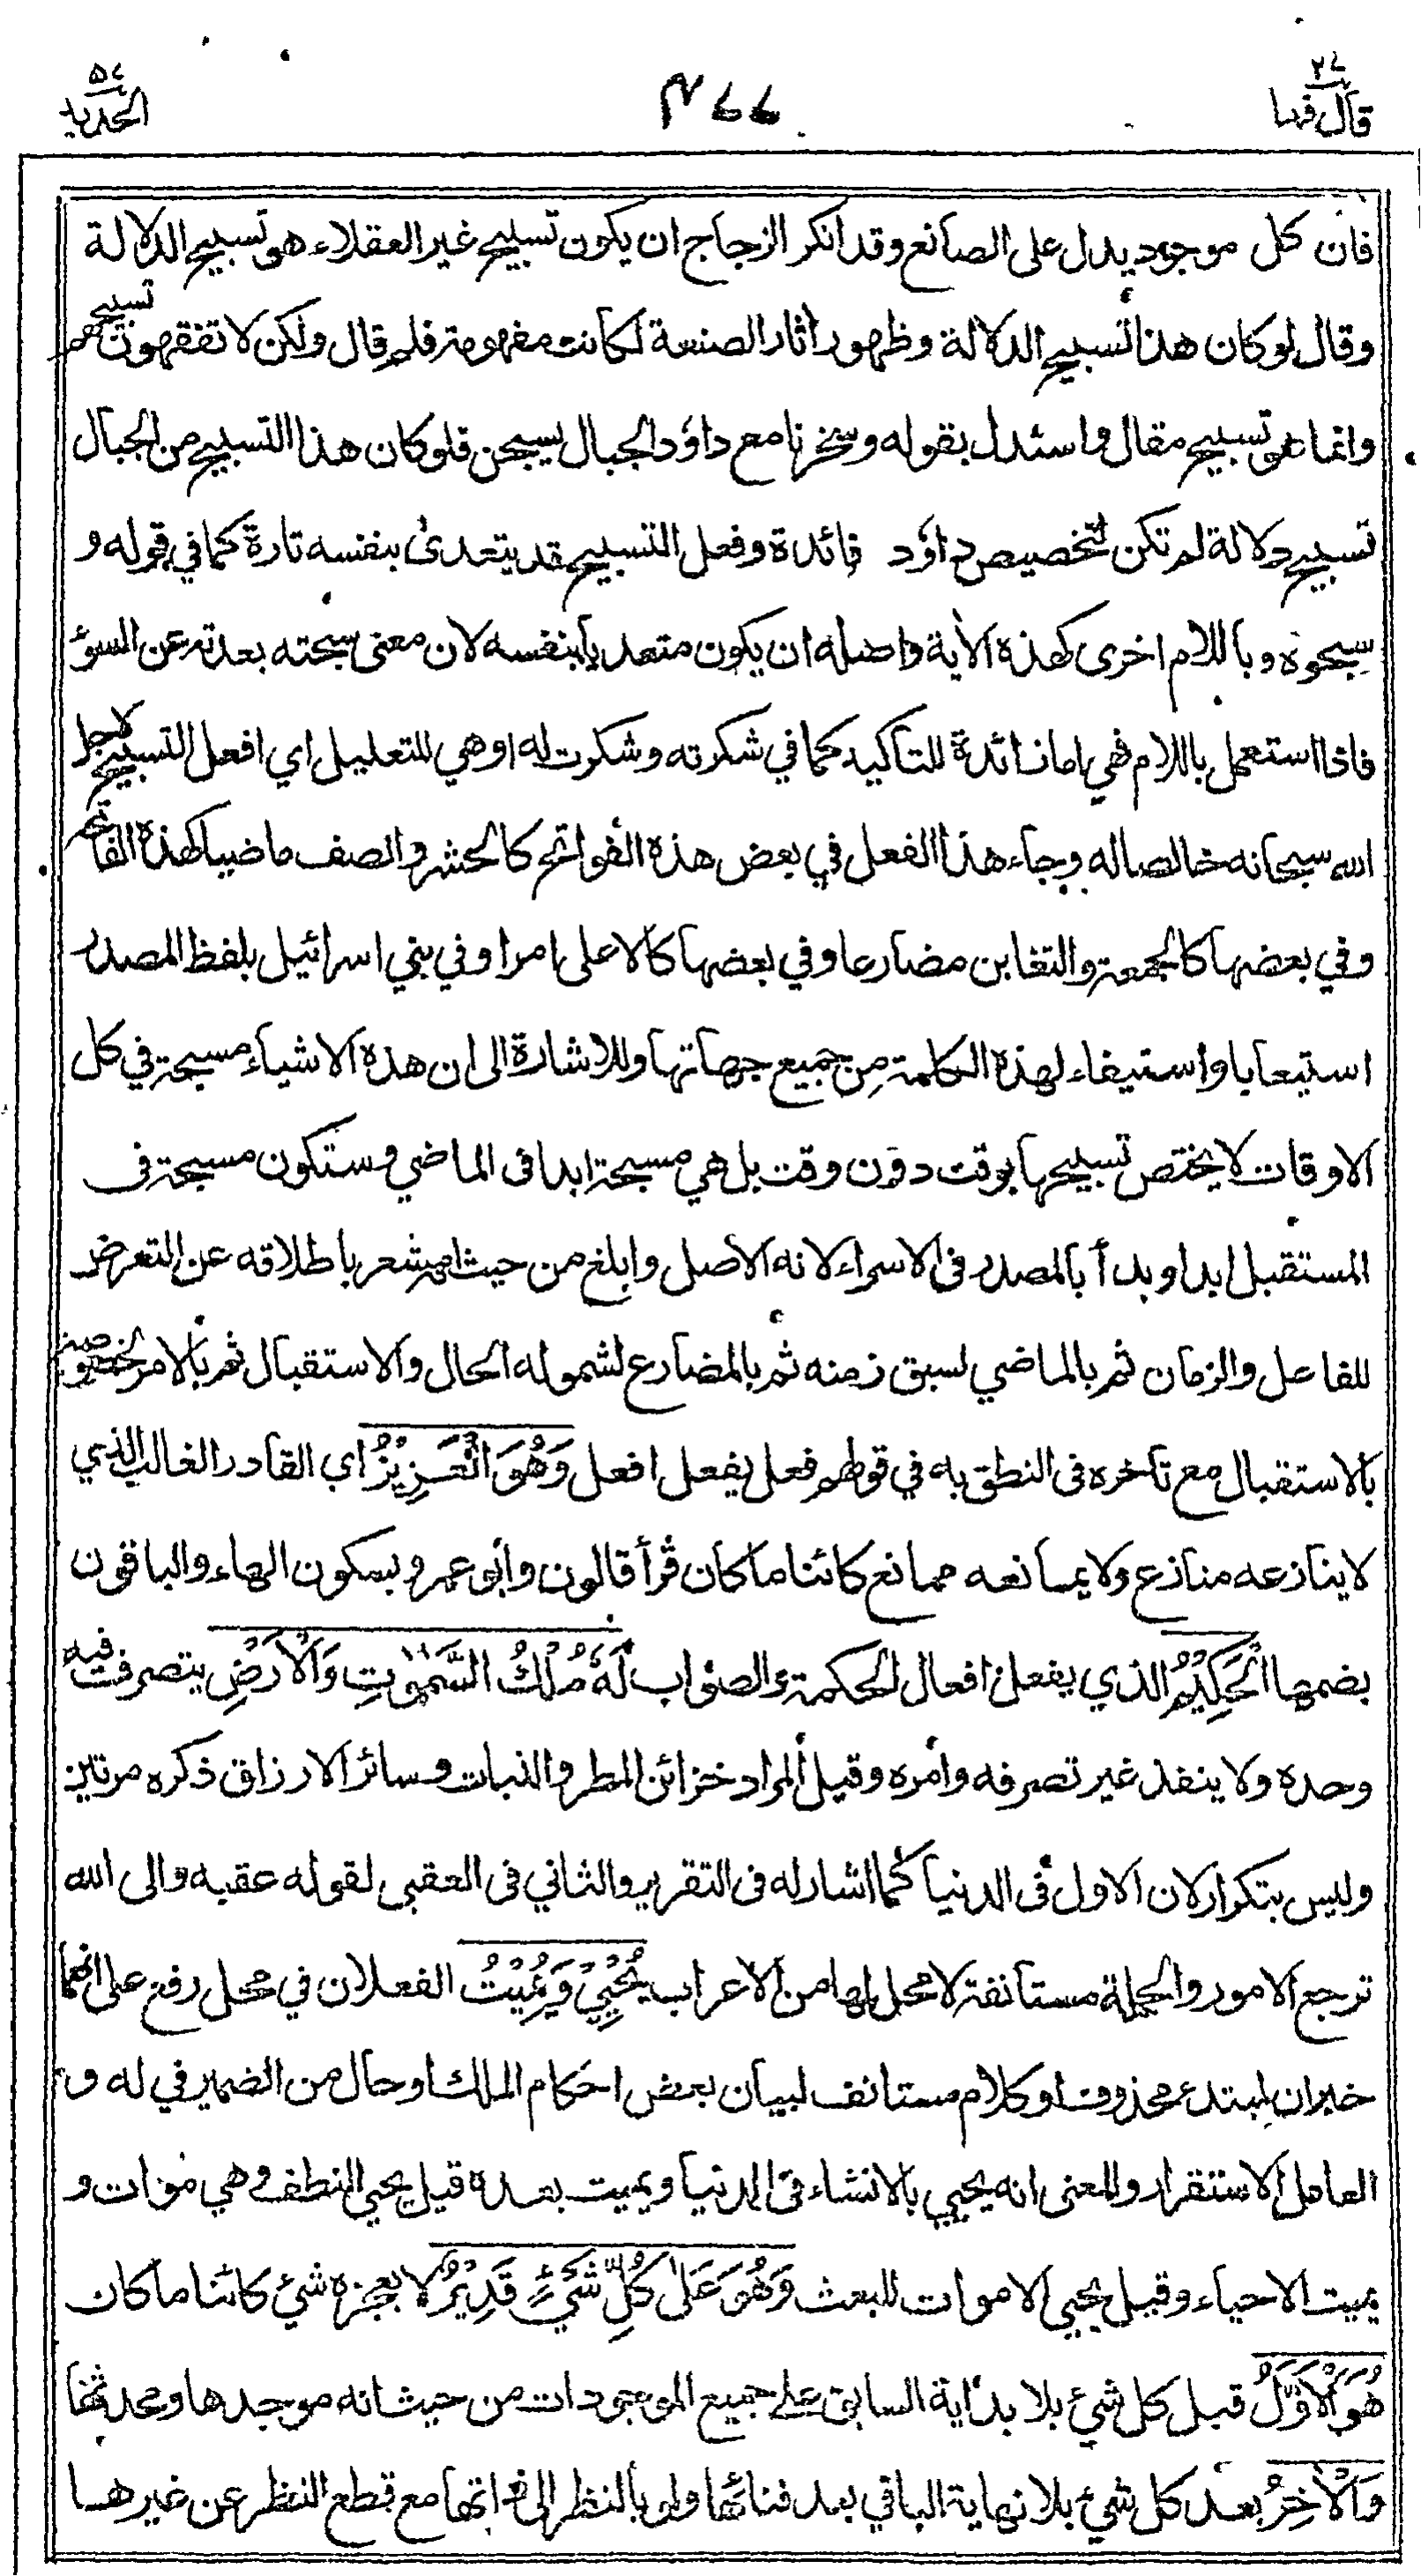 قال فما ٢٧
٤٦٦
الحديد ٥٧
فان كل موجود يدل على الصانع وقد انكر الزجاج ان يكون تسبيح غير العقلاء هو تسبيح الدلالة
وقال لو كان هذا تسبيح الدلالة وظهور اثار الصنعة لكانت مفهومة فلم قال ولكن لا تفقهون تسبيحهم
وانما هو تسبيح مقال واستدل بقوله وسخرنا مع داؤد الجبال يسبحن فلو كان هذا التسبيح من الجبال
تسبيح دلالة لم تكن لتخصيص داؤد فائدة وفعل التسبيح قد يتعدى بنفسه تارة كما في قوله و
سبحوه وباللام اخرى كهذه الآية واصله ان يكون متعديا بنفسه لان معنى سبحته بعدته عن السوء
فاذا استعمل باللام فهي اما زائدة للتاكيد كما في شكرته وشكرت له او هي للتعليل اي افعل التسبيح لاجل
الله سبحانه خالصا له وجاء هذا الفعل في بعض هذه الفواتح كالحشر والصف ماضيا كهذه الفاتحة
وفي بعضها كالجمعة والتغابن مضارعا وفي بعضها كالاعلى امرا وفي بني اسرائيل بلفظ المصدر
استيعابا واستيفاء لهذه الكلمة من جميع جهاتها وللاشارة الى ان هذه الاشياء مسبحة في كل
الاوقات لا يختص تسبيحها بوقت دون وقت بل هي مسبحة ابدا فى الماضي وستكون مسبحة فى
المستقبل ابدا وبدأ بالمصدر فى الاسراء لانه الاصل وابلغ من حيث انه مشعر باطلاقه عن التعرض
للفاعل والزمان ثم بالماضي لسبق زمنه ثم بالمضارع لشموله الحال والاستقبال ثم بالامر لخصوصه
بالاستقبال مع تاخره فى النطق به في قولهم فعل يفعل افعل وَهُوَ الْعَزِيْزُ اي القادر الغالب الذي
لا ينازعه منازع ولا يمانعه ممانع كائنا ما كان قرأ قالون وأبو عمرو بسكون الهاء والباقون
بضمها الْحَكِيْمُ الذي يفعل افعال الحكمة والصواب لَهٗ مُلْكُ السَّمٰوٰتِ وَالْاَرْضِ يتصرف فيه
وحده ولا ينفذ غير تصرفه وامره وقيل المراد خزائن المطر والنبات وسائر الارزاق ذكره مرتين
وليس بتكرار لان الاول فى الدنيا كما اشار له فى التقرير والثاني فى العقبى لقوله عقبه والى الله
ترجع الامور والجملة مستانفة لا محل لها من الاعراب يُحْيِيْ وَيُمِيْتُ الفعلان في محل رفع على انهما
خبران لمبتدء محذوف او كلام مستانف لبيان بعض احكام الملك او حال من الضمير في له و
العامل الاستقرار والمعنى انه يحيي بالانشاء فى الدنيا ويميت بعده قيل يحيي النطف وهي موات و
يميت الاحياء وقيل يحيي الاموات للبعث وَهُوَ عَلٰى كُلِّ شَيْءٍ قَدِيْرٌ لا يعجزه شئ كائنا ما كان
هُوَ الْاَوَّلُ قبل كل شئ بلا بداية السابق على جميع الموجودات من حيث انه موجدها ومحدثها
وَالْاٰخِرُ بعد كل شئ بلا نهاية الباقي بعد فنائها ولو بالنظر الى ذاتها مع قطع النظر عن غيرها